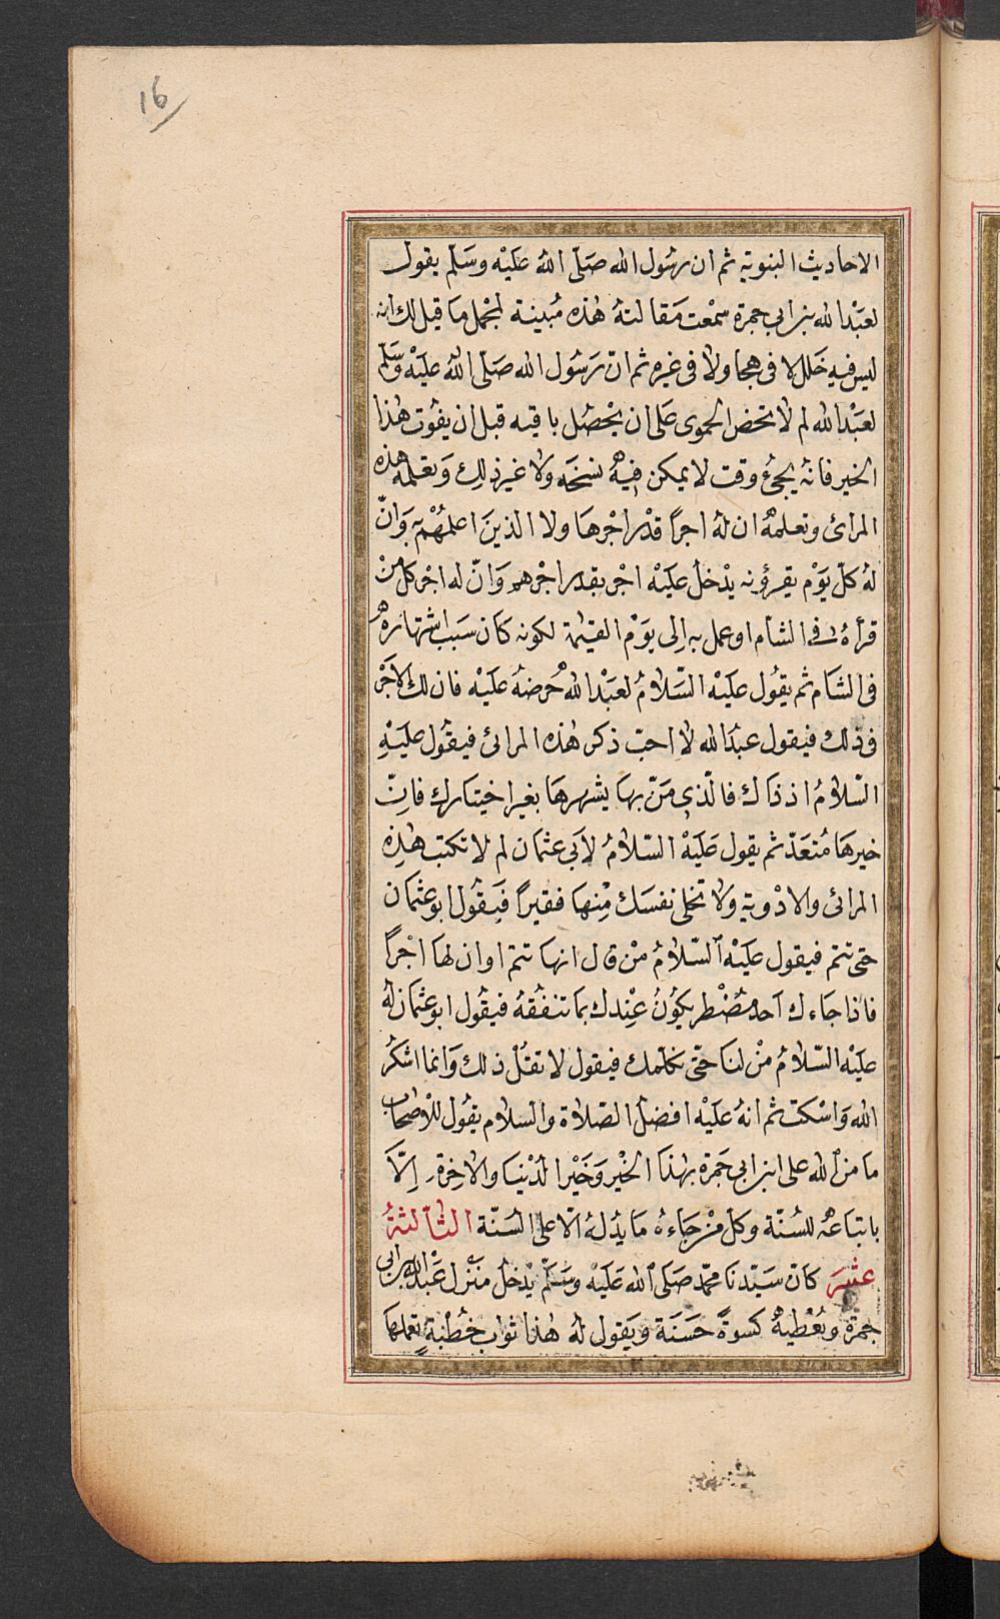 16
الاحاديث البنوية ثم ان رسُول الله صَلّى اللهُ عَليْه وسَلّم يقول
لعبْدالله بن ابى جمرة سمْعت مَقالتهُ هٰذه مُبينة لمجْمل ما قيل لك انه
ليس فيه خَلل لا فى هجا ولا فى غيره ثم انّ رَسُول الله صَلّى اللهُ عليْه وسَلّم
لعبْدالله لم لا تحض الحموى عَلى ان يحْصُل باقيه قبل ان يفُوت هٰذا
الخير فانهُ يجئ وقت لا يمكن فيهُ نسخَه ولا غير ذلِك وَتعلمهُ هذه
المرائ وتعلمهُ ان لهُ اجرًا قدْر اجْرهَا ولا الذينَ اعلمُهْم به وَانّ
لهُ كلّ يَوْم يقرؤنه يدْخلُ عليْه اجْر بقدر اجْرهم وَانّ له اجْر كل منْ
قرأهُ فى الشام او عمل به اِلى يوَْم القيٰمة لكونه كان سَبب اشتهاره
فى الشام ثم يقُول عليْه السّلامُ لعبْدالله حُرضهُ عليْه فان لك الاجْر
فى ذلك فيقول عبدُالله لا احبّ ذكر هٰذه المرائ فيقُول عليْهِ
السّلامُ اذ ذاك فالّذى مَنّ بها يشهرها بغير اختيارك فانّ
خيرها مُتعَدّ ثم يقول عَليْه السّلامُ لاَبى عثمان لم لا تكتب هٰذِه
المرائ والادْوية ولا تخلى نفسَك مِْنها فقيرًا فَيقُول ابوعثمان
حتى تتم فيقول عليْه السّلامُ منْ قال انها تتم اوان لها اجْرًا
فاذا جَاءك اَحد مضْطر يكُونُ عِنْدك بما تنفْقهُ فيقُول ابوعثمان لهُ
عليْه السّلامُ منْ لنا حتّى نكلمك فيقول لا تقُلْ ذلك وَانما اشكُر
الله وَاسْكت ثم انهُ عليْه افضلُ الصّلاة والسلام يقُول للأصْحاب
ما من الله على ابن ابى جَمرة بهٰذا الخْير وَخَيْر الدّنيا والاٰخِرة اِلّا
باتباعهُ للسُنّة وكلّ منْ جَاءهُ مَا يدُلهُ الّا على السُنّة الثالثةُ
عشرَ كانّ سَيّدنا محمّد صَلّى الله عَليْه وسَلّم يَدْخل منْزل عَبْدالله بن ابى
جمرة ويُعْطيهُ كسوةً حَسَنَة ويَقول لهُ هٰذا ثواب خُطْبةٍ تعملها